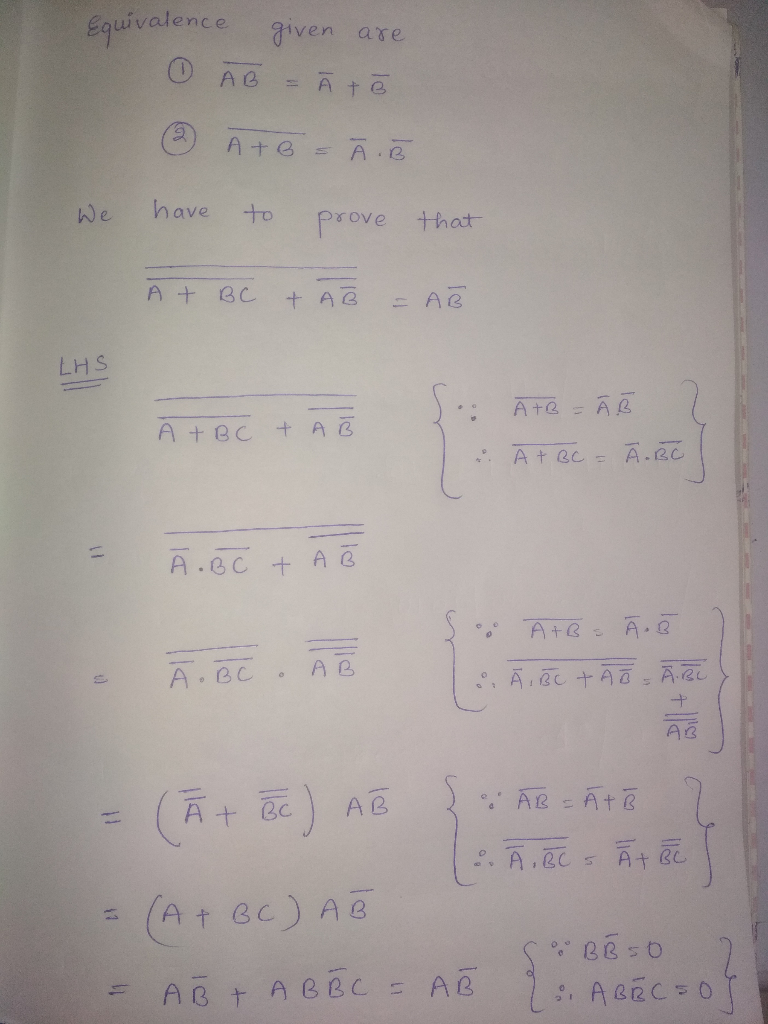 Equivalence given are
① A̅B̅ = A̅ + B̅
② A̅ ̅+̅ ̅B̅ = A̅ . B̅
We have to prove that
\overline{\overline{A + BC} + \overline{A\overline{B}}} = A\overline{B}
LHS
\overline{\overline{A + BC} + \overline{A\overline{B}}} { ∵ \overline{A+B} = \overline{A}.\overline{B}
∴ \overline{A + BC} = \overline{A}.\overline{BC} }
= \overline{\overline{A}.\overline{BC} + \overline{A\overline{B}}}
= \overline{\overline{A}.\overline{BC}} . \overline{\overline{A\overline{B}}} { ∵ \overline{A+B} = \overline{A}.\overline{B}
∴ \overline{\overline{A}.\overline{BC} + \overline{A\overline{B}}} = \overline{\overline{A}.\overline{BC}}
+
\overline{\overline{A\overline{B}}} }
= (\overline{\overline{A}} + \overline{\overline{BC}}) A\overline{B} { ∵ \overline{AB} = \overline{A}+\overline{B}
∴ \overline{\overline{A}.\overline{BC}} = \overline{\overline{A}} + \overline{\overline{BC}} }
= (A + BC) A\overline{B}
= A\overline{B} + AB\overline{B}C = A\overline{B} { ∵ B\overline{B} = 0
∴ AB\overline{B}C = 0 }